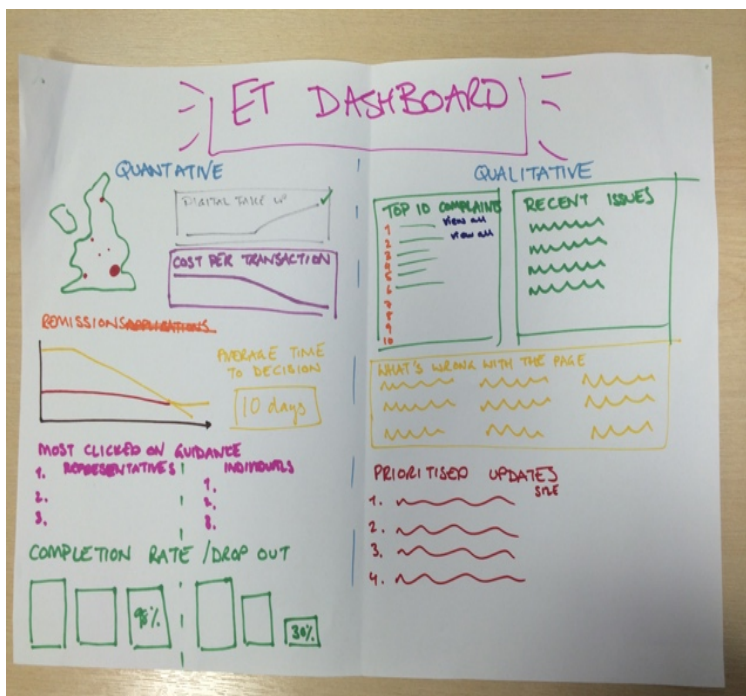 ET DASHBOARD
QUANTATIVE
DIGITAL TAKE UP
COST PER TRANSACTION
REMISSIONS APPLICATIONS
AVERAGE TIME
TO DECISION
10 days
MOST CLICKED ON GUIDANCE
REPRESENTATIVES
1.
2.
3.
INDIVIDUALS
1.
2.
3.
COMPLETION RATE / DROP OUT
98%
30%
QUALITATIVE
TOP 10 COMPLAINTS
1 view all
2 view all
3
4
5
6
7
8
9
10
RECENT ISSUES
WHAT'S WRONG WITH THE PAGE
PRIORITISED UPDATES
SIZE
1.
2.
3.
4.